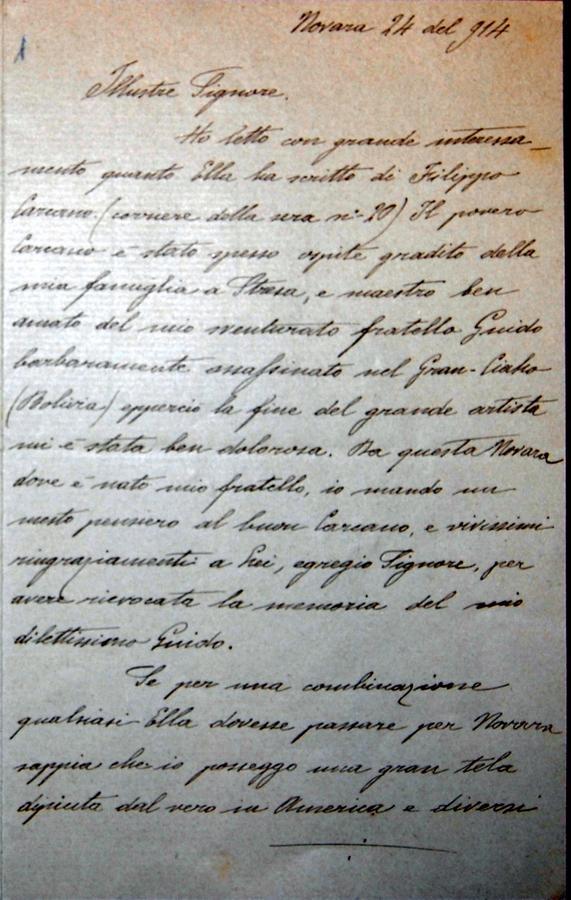 Novara 24 del 914
Illustre Signore.
Ho letto con grande interessa_
mento quanto Ella ha scritto di Filippo
Carcano (corriere della sera n: 20) Il povero
Carcano è stato spesso ospite gradito della
mia famiglia a Stresa, e maestro ben
amato del mio sventurato fratello Guido
barbaramente assassinato nel Gran-Ciako
(Bolivia) epperciò la fine del grande artista
mi è stata ben dolorosa. Da questa Novara
dove è nato mio fratello, io mando un
mesto pensiero al buon Carcano, e vivissimi
ringraziamenti a Lei, egregio Signore, per
avere rievocata la memoria del mio
dilettissimo Guido.
Se per una combinazione
qualsiasi Ella dovesse passare per Novara
sappia che io posseggo una gran tela
dipinta dal vero in America e diversi